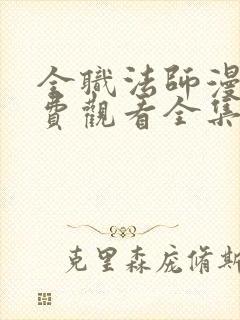 全職法師漫
費觀看全集
克里森庞脩斯